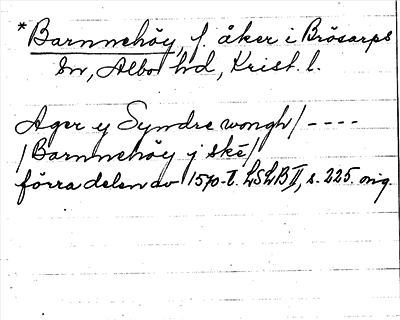 *Barnnehöy, f. åker i Brösarps
sn, Albo hd, Krist. l.
Ager y Syndre wongh/ ----
/Barnnehöy j ské/
förra delen av 1570-t. LSLB II, s. 225. orig.